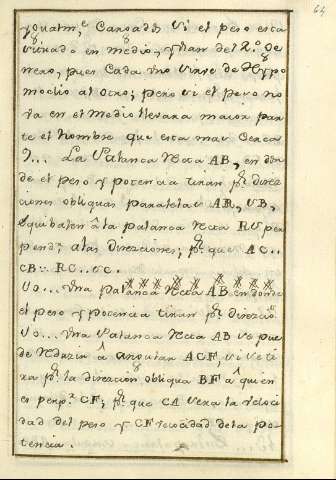 64
ygualm.te Cargads si el peso esta
situado en medio, y son del 2.º Ge
nero, pues cada uno sirve de Hypo
moclio al otro; pero si el peso no
va en el medio llevara maior par
te el hombre que esta mas Cerca
9... La Palanca recta AB, en don
de el peso y potencia tiran p.r direc
ciones obliquas paralelas AR, SB,
Equibalen â la palanca recta RS per
pend; alas direcciones; p.r que AC..
CB:: RC..SC.
10... Una palanca recta AB en donde
el peso y potencia tiran p.r direccio.s
10... Una Palanca recta AB se pue
de reducir â angular ACF, si se ti
ra p.r la direccion obliqua BF â qui en
es perp.r CF; p.r que CA sera la veloci
dad del peso y CF velocidad dela po
tencia.